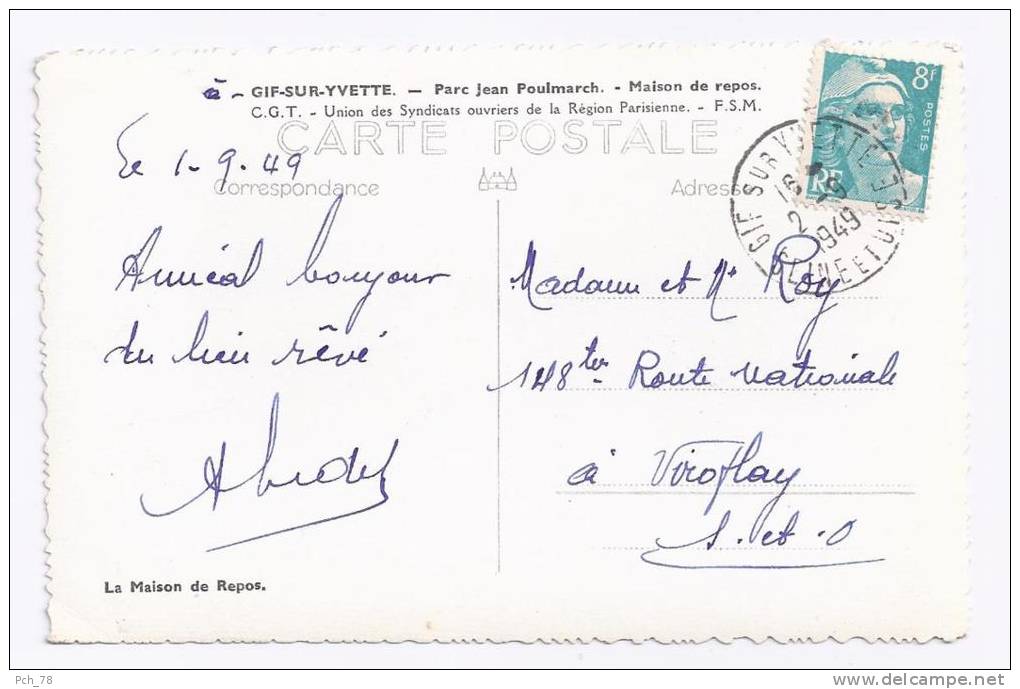 à - GIF-SUR-YVETTE. — Parc Jean Poulmarch. - Maison de repos.
C.G.T. - Union des Syndicats ouvriers de la Région Parisienne. - F.S.M.
CARTE POSTALE
Correspondance
Adresse
Le 1-9.49
Amical bonjour
du lieu rêvé
La Maison de Repos.
8f
POSTES
RF
GIF SUR YVETTE
16
2 9
1949
SEINE ET OISE
Madame et Mr Roy
148ter Route Nationale
à Viroflay
S. et. O
Pch_78
delcampe.net